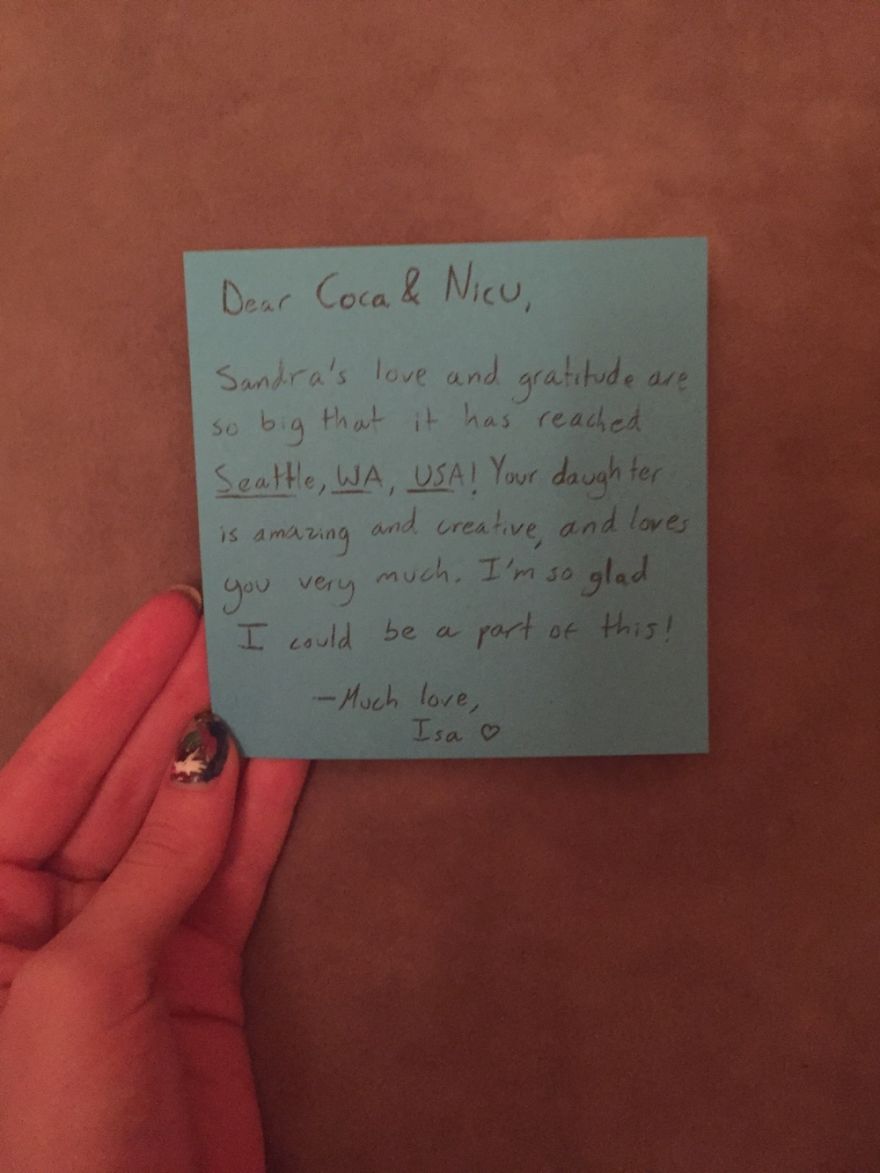 Dear Coca & Nicu,
Sandra's love and gratitude are
so big that it has reached
Seattle, WA, USA! Your daughter
is amazing and creative, and loves
you very much. I'm so glad
I could be a part of this!
—Much love,
Isa ♡